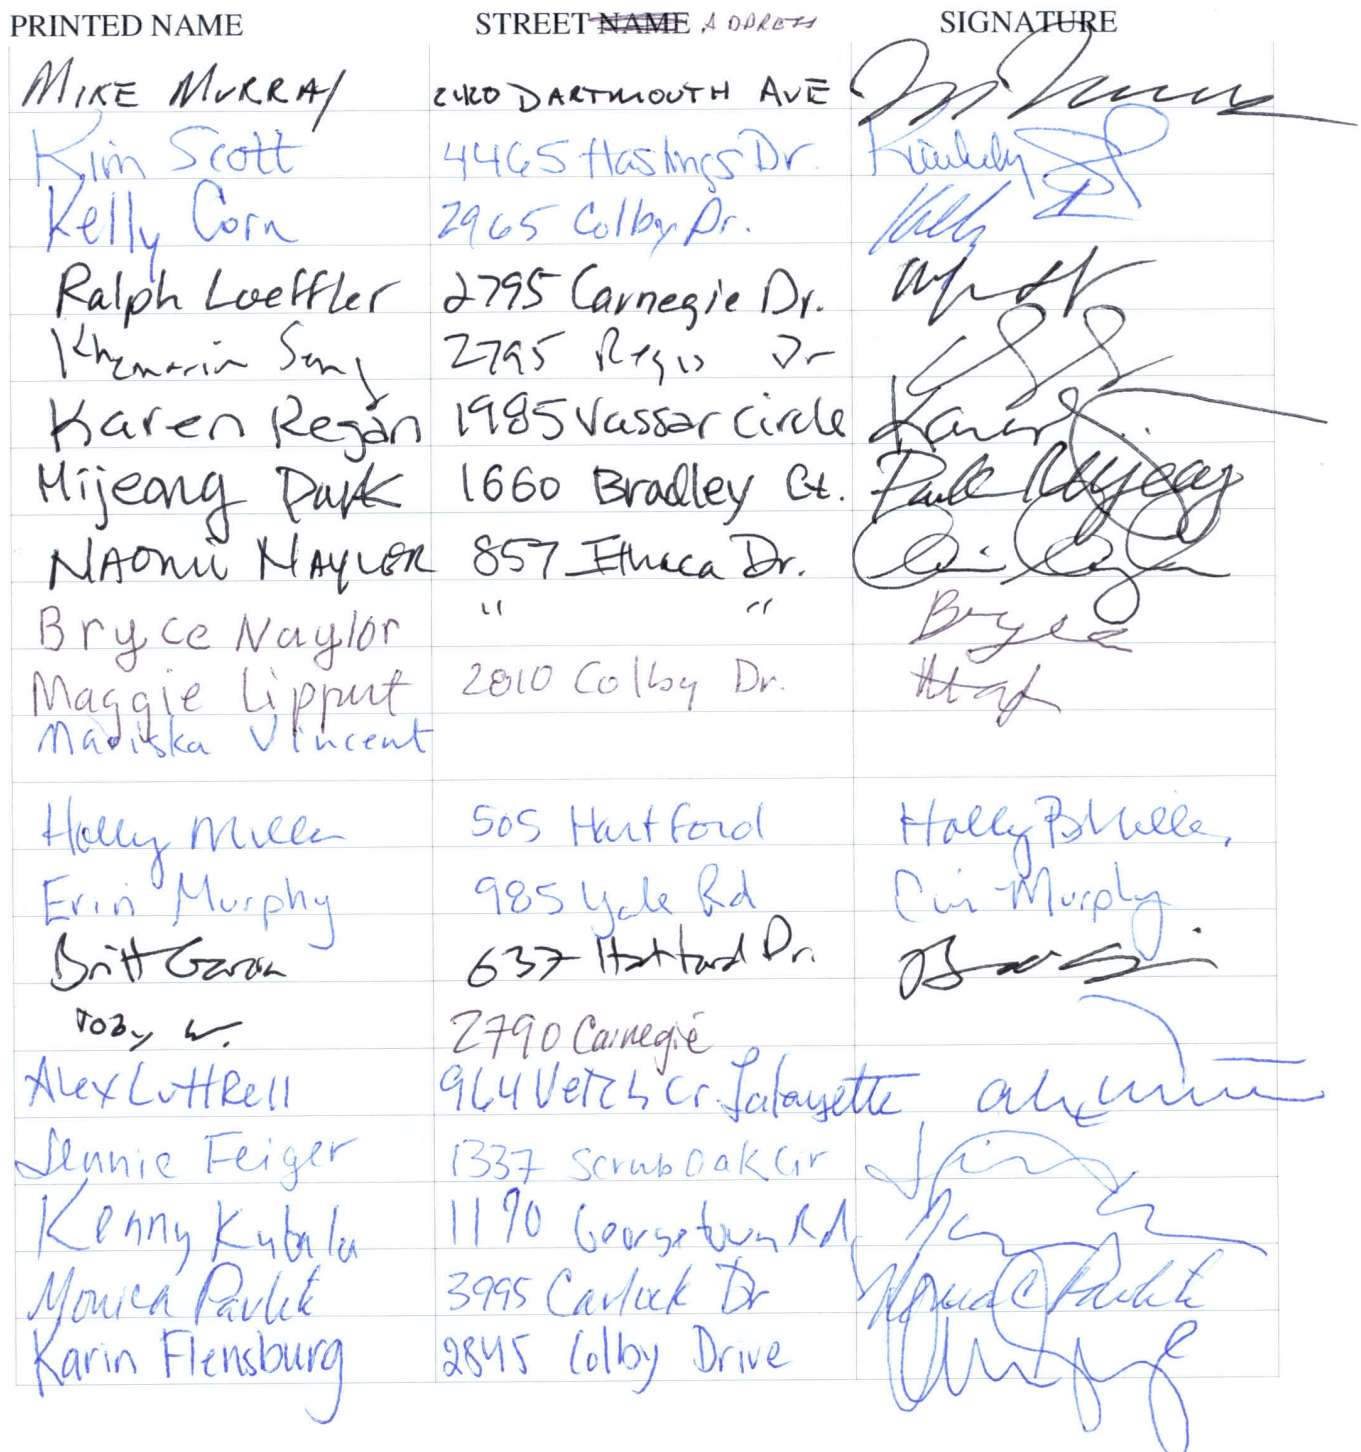 PRINTED NAME STREET NAME ADDRESS SIGNATURE
MIKE MURRAY 2420 DARTMOUTH AVE
Kim Scott 4465 Hastings Dr. Kimberly
Kelly Corn 2965 Colby Dr. Kelly
Ralph Loeffler 2795 Carnegie Dr.
2795 Regis Dr
Karen Regan 1985 Vassar Circle Karen
Mijeong Park 1660 Bradley Ct. Park Mijeong
NAOMI NAYLOR 857 Ithaca Dr.
Bryce Naylor " " Bryce
Maggie Lippert 2810 Colby Dr.
Mariska Vincent
Holly Miller 505 Hartford Holly B Miller
Erin Murphy 985 Yale Rd Erin Murphy
Britt 637 Hartford Dr.
TOBY W. 2790 Carnegie
Alex LuttRell 964 Vetch Cr. Lafayette
Jennie Feiger 1337 Scrub Oak Cir
Kenny Kubala 1190 Georgetown Rd
Monica Pavlik 3995 Carlock Dr Monica C Pavlik
Karin Flensburg 2845 Colby Drive